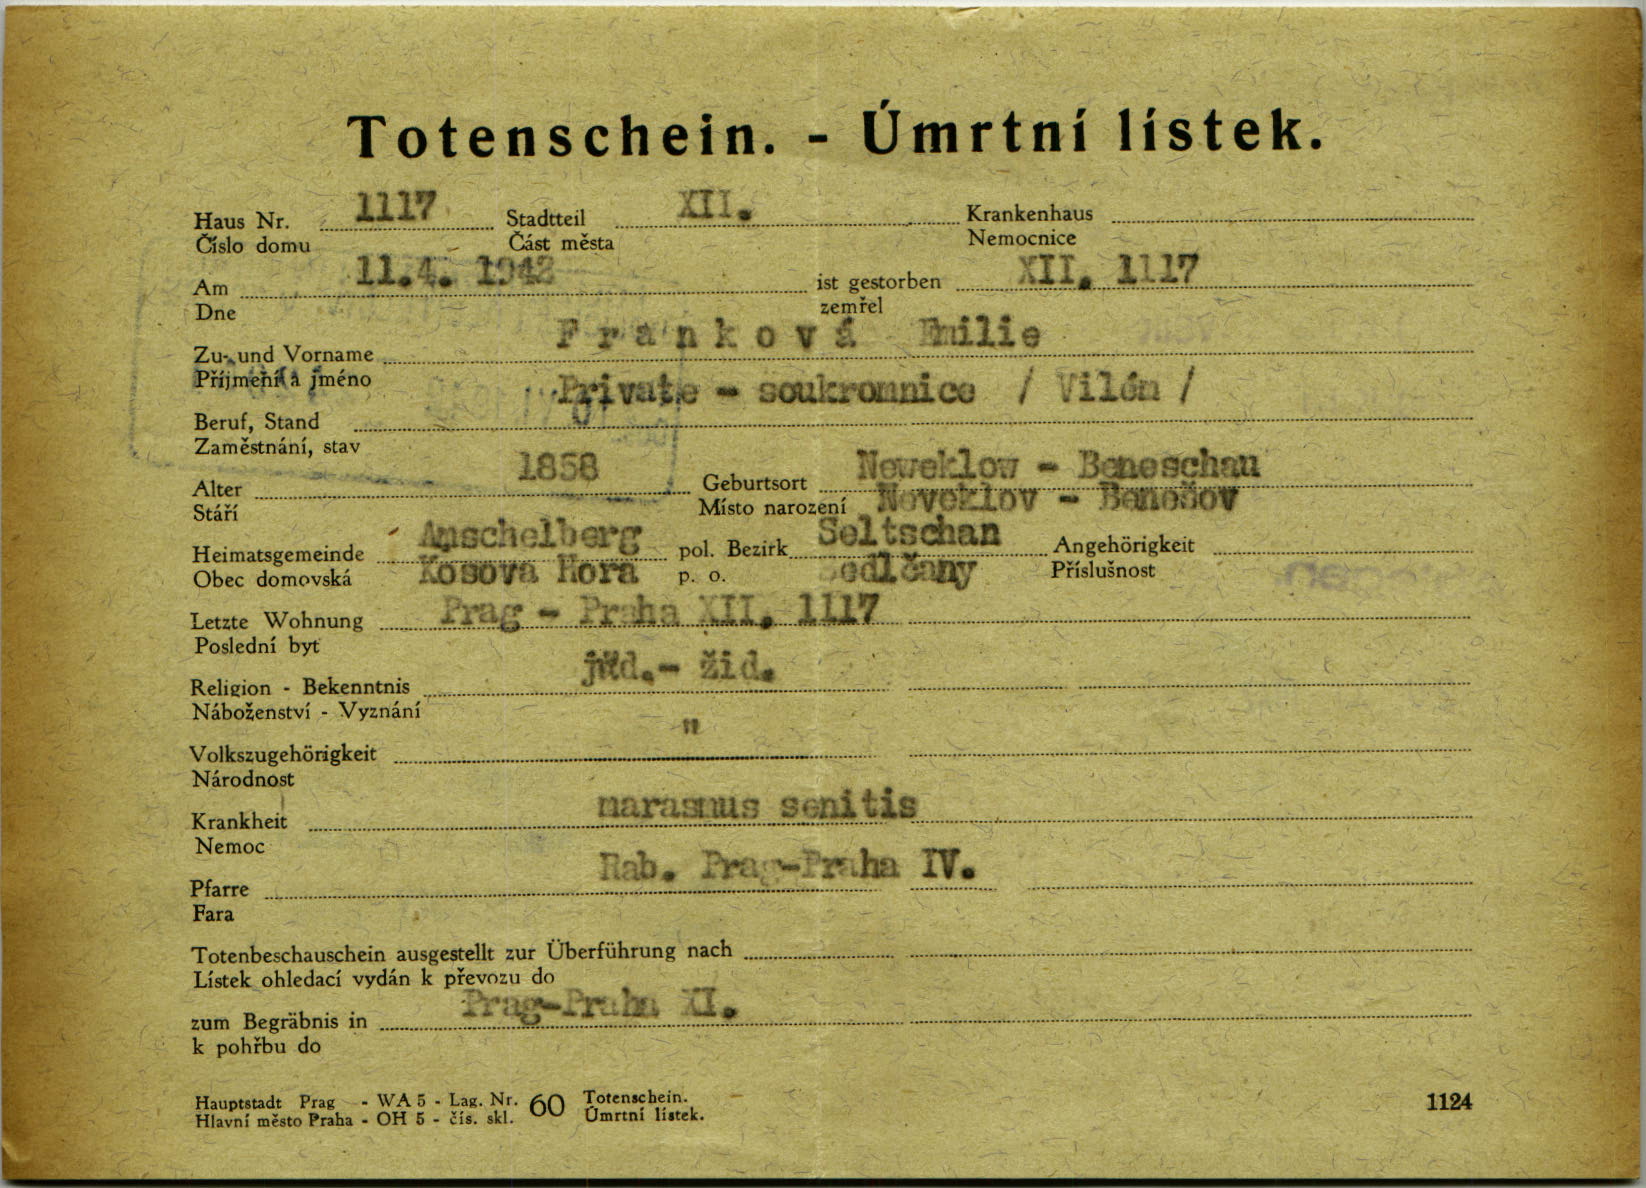 Totenschein. - Úmrtní lístek.
Haus Nr. 1117 Stadtteil XII. Krankenhaus
Číslo domu Část města Nemocnice
Am 11.4. 1942 ist gestorben XII. 1117
Dne zemřel
Zu- und Vorname Franková Emilie
Příjmení a jméno
Beruf, Stand Private - soukromnice / Vilém /
Zaměstnání, stav
Alter 1858 Geburtsort Neweklow - Beneschau
Stáří Místo narození Neveklov - Benešov
Heimatsgemeinde Amschelberg pol. Bezirk Seltschan Angehörigkeit
Obec domovská Kosova Hora p. o. Sedlčany Příslušnost
Letzte Wohnung Prag - Praha XII. 1117
Poslední byt
Religion - Bekenntnis jüd.- žid.
Náboženství - Vyznání
Volkszugehörigkeit "
Národnost
Krankheit marasmus senitis
Nemoc
Pfarre Rab. Prag-Praha IV.
Fara
Totenbeschauschein ausgestellt zur Überführung nach
Lístek ohledací vydán k převozu do
zum Begräbnis in Prag-Praha XI.
k pohřbu do
Hauptstadt Prag - WA 5 - Lag. Nr. 60 Totenschein. 1124
Hlavní město Praha - OH 5 - čís. skl. Úmrtní lístek.